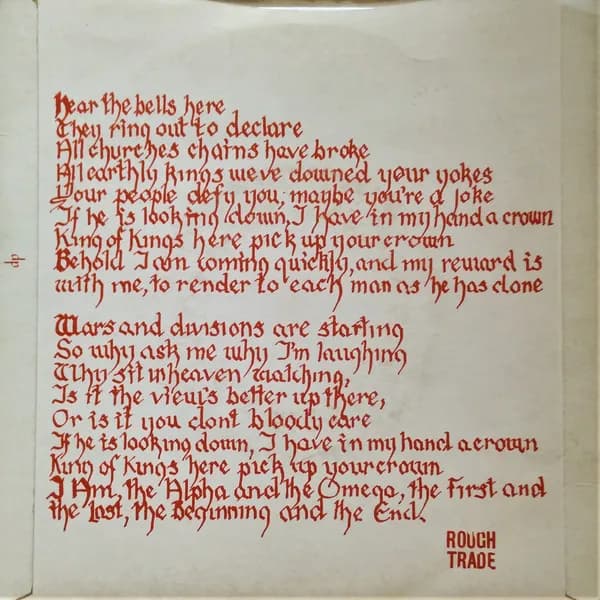 Hear the bells here
They ring out to declare
All churches chains have broke
All earthly kings we've downed your yokes
Your people defy you, maybe you're a joke
If he is looking down, I have in my hand a crown
King of Kings here pick up your crown
Behold I am coming quickly, and my reward is
with me, to render to each man as he has done
Wars and divisions are starting
So why ask me why I'm laughing
Why sit in heaven watching,
Is it the view's better up there,
Or is it you dont bloody care
If he is looking down, I have in my hand a crown
King of Kings here pick up your crown
I Am, the Alpha and the Omega, the first and
the Last, the Beginning and the End.
ROUGH
TRADE